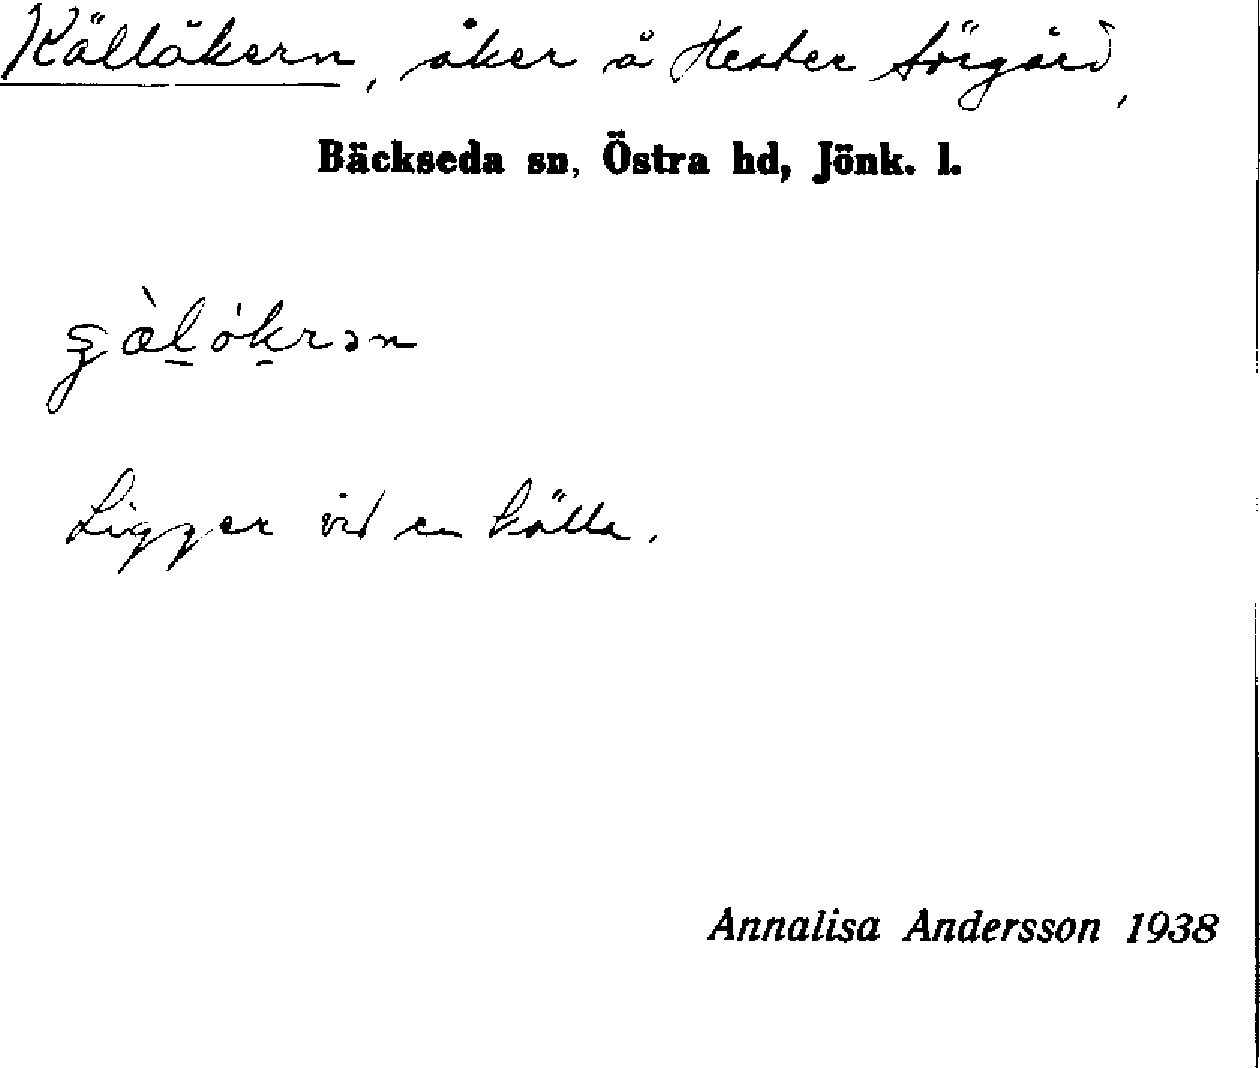 Källåkern, åker å Hester Sörgård,
Bäckseda sn, Östra hd, Jönk. l.
Ligger vid en källa.
Annalisa Andersson 1938